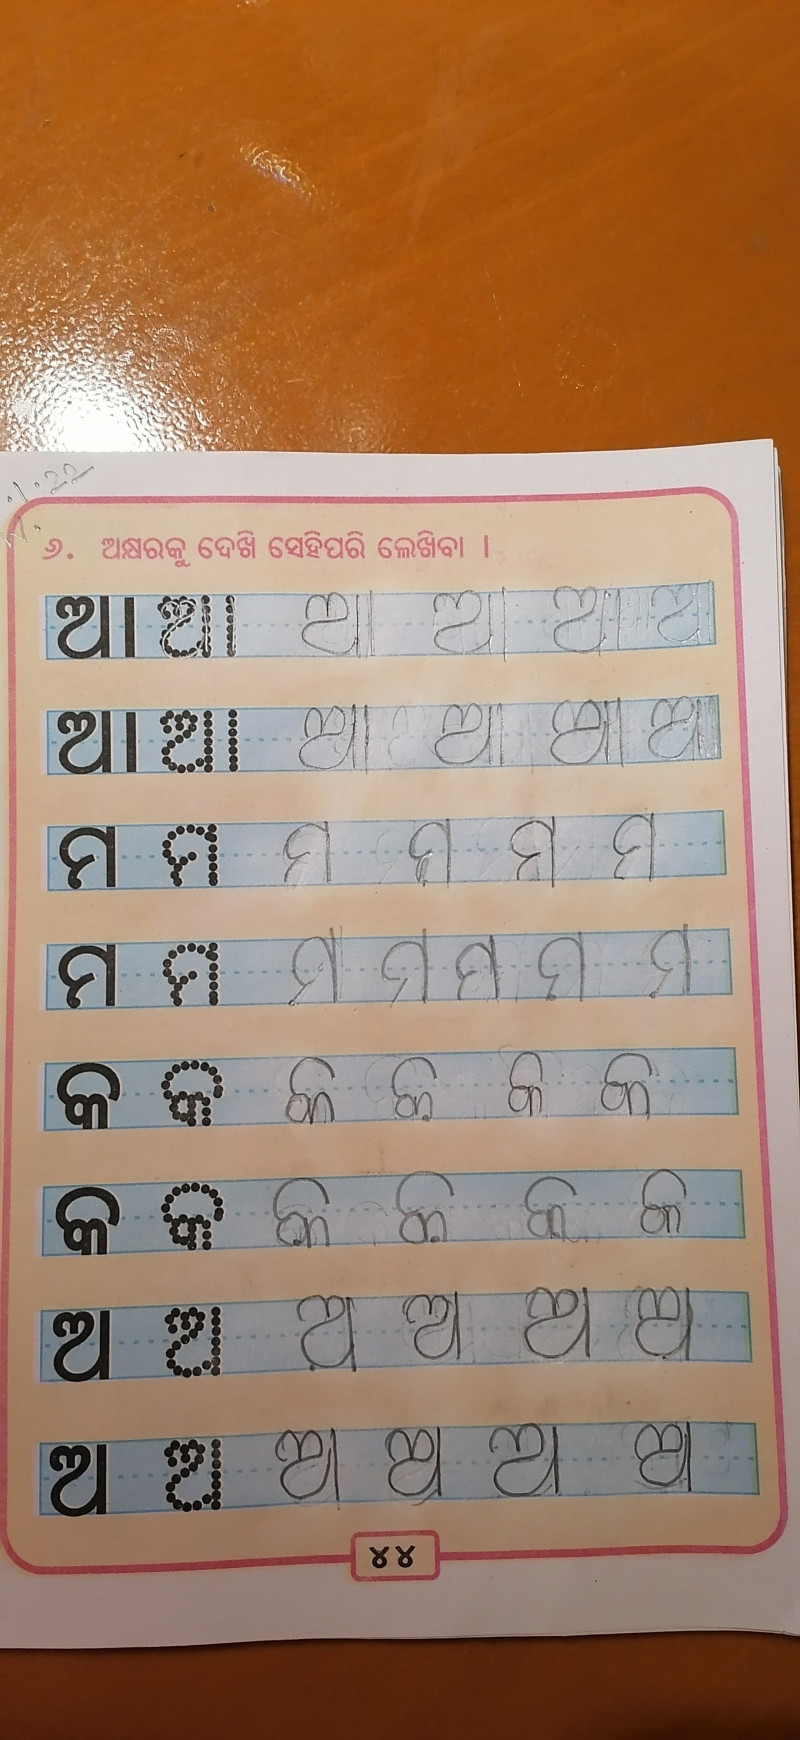 ୬. ଅକ୍ଷରକୁ ଦେଖି ସେହିପରି ଲେଖିବା ।
ଆ ଆ ଆ ଆ ଆ ଆ
ଆ ଆ ଆ ଆ ଆ ଆ
ମ ମ ମ ମ ମ ମ
ମ ମ ମ ମ ମ ମ ମ
କ କ କ କ କ କ
କ କ କ କ କ କ
ଅ ଅ ଅ ଅ ଅ ଅ
ଅ ଅ ଅ ଅ ଅ ଅ
୪୪